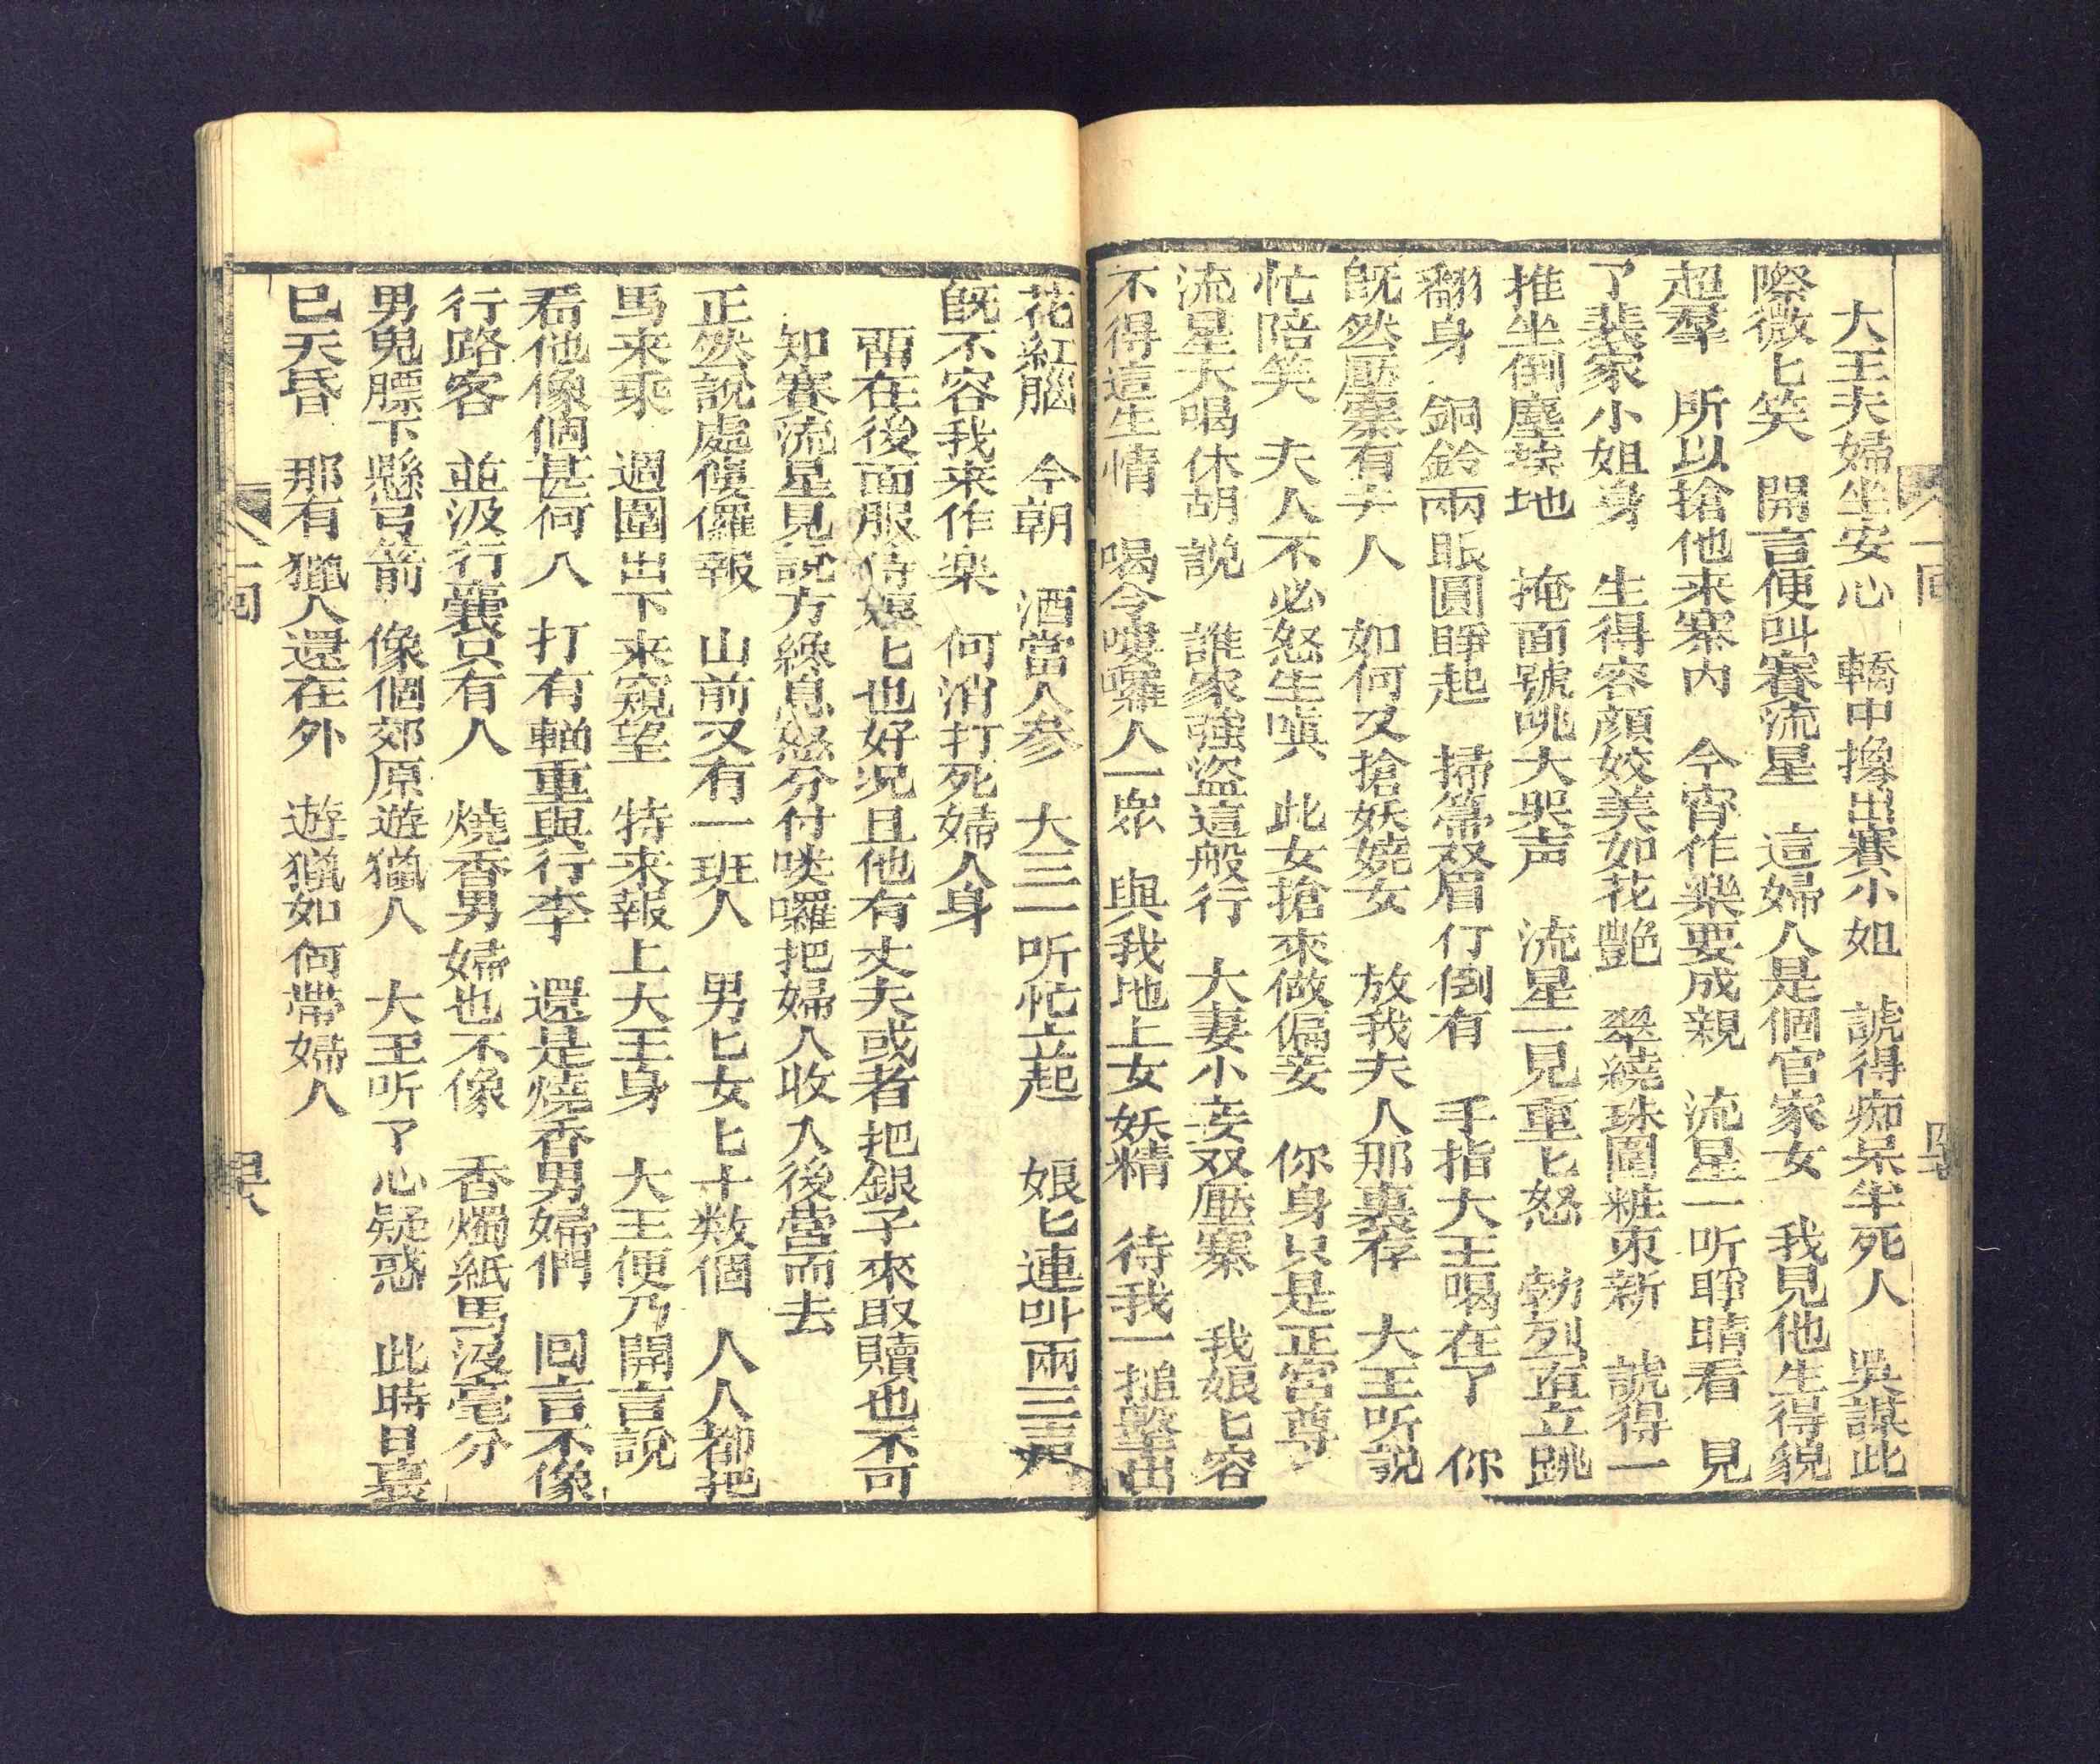 大王夫婦坐安心　轎中攙出賽小姐　諕得痴呆半死人　吳謀此
際微匕笑　開言便叫賽流星　這婦人是個官家女　我見他生得貌
超羣　所以搶他来寨内　今宵作樂要成親　流星一听睜睛看　見
了裴家小姐身　生得容顔姣美如花艶　翠繞珠圍粧束新　諕得一
推坐倒塵埃地　掩面號咷大哭声　流星一見重匕怒　勃列直立跳
翻身　銅鈴兩眼圓睜起　掃箒双眉仃倒有　手指大王喝在了　你
旣然壓寨有夫人　如何又搶妖嬈女　放我夫人那裏存　大王听説
忙陪笑　夫人不必怒生嗔　此女搶來做偏妾　你身只是正宮尊
流星大喝休胡説　誰家強盜這般行　大妻小妾双壓寨　我娘匕容
不得這生情　喝令嘍囉人一衆　與我地上女妖精　待我一搥擊出
花紅腦　今朝　酒當人参　大王一听忙立起　娘匕連叫兩三声
旣不容我来作樂　何消打死婦人身
留在後面服侍娘匕也好况且他有丈夫或者把銀子來取贖也不可
知賽流星見説方纔息怒分付嘍囉把婦人收入後營而去
正然説處僂儸報　山前又有一班人　男匕女匕十数個　人人都把
馬来乘　週圍出下来窺望　特来報上大王身　大王便乃開言説
看他像個甚何人　打有輜重與行李　還是燒香男婦們　囘言不像
行路客　並没行囊只有人　燒香男婦也不像　香燭紙馬没毫分
男兒膘下懸弓箭　像個郊原遊獵人　大王听了心疑惑　此時日暮
已天昏　那有獵人還在外　遊獵如何帶婦人